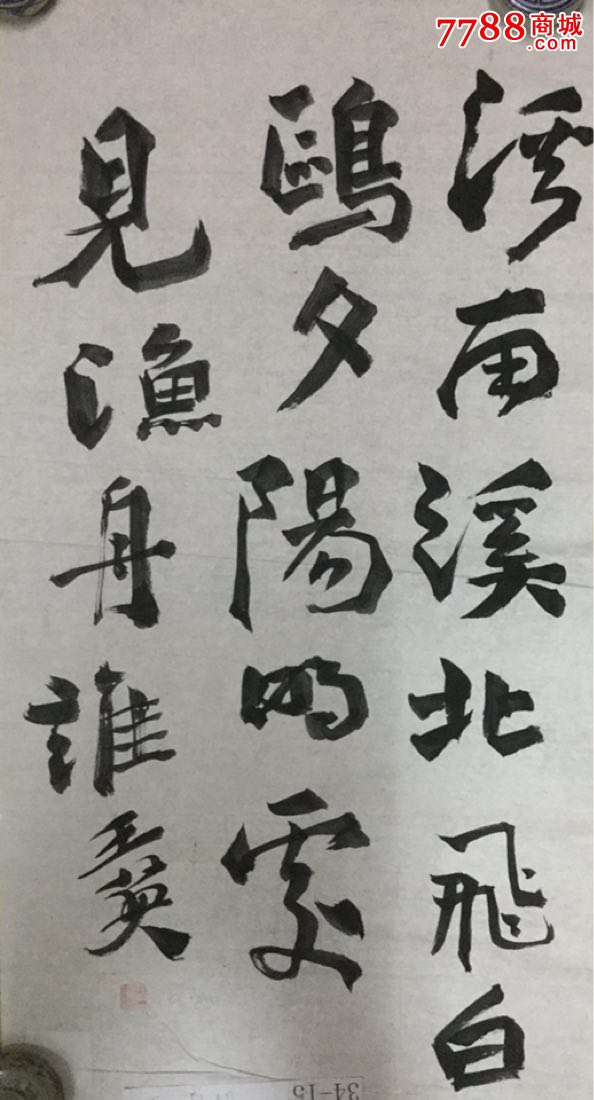 7788商城
.com
溪南溪北飛白
鷗夕陽明處
見漁舟誰
34-15